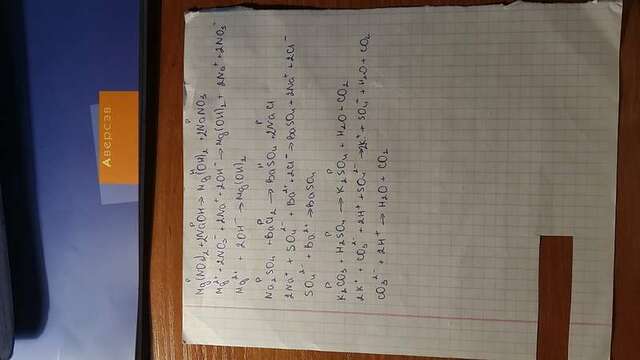 Аверсэв
р р н р
Mg(NO3)2 + 2NaOH → Mg(OH)2 + 2NaNO3
Mg2+ + 2NO3- + 2Na+ + 2OH- → Mg(OH)2 + 2Na+ + 2NO3-
Mg2+ + 2OH- → Mg(OH)2
р р н р
Na2SO4 + BaCl2 → BaSO4 + 2NaCl
2Na+ + SO42- + Ba2+ + 2Cl- → BaSO4 + 2Na+ + 2Cl-
SO42- + Ba2+ → BaSO4
р р р
K2CO3 + H2SO4 → K2SO4 + H2O + CO2
2K+ + CO32- + 2H+ + SO42- → 2K+ + SO42- + H2O + CO2
CO32- + 2H+ → H2O + CO2